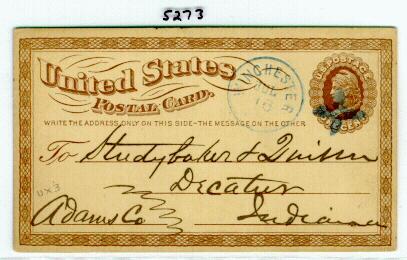 5273
United States
U.S. POSTAGE
WINCHESTER
16
POSTAL CARD.
WRITE THE ADDRESS ONLY ON THIS SIDE–THE MESSAGE ON THE OTHER
To Studybaker & Quinn
Decatur
UX3
Adams Co Indiana